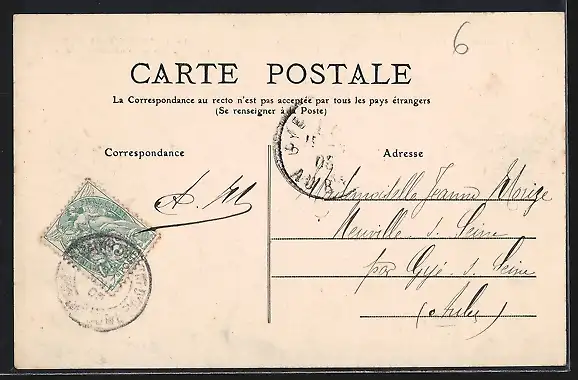 6
CARTE POSTALE
La Correspondance au recto n'est pas acceptée par tous les pays étrangers
(Se renseigner à la Poste)
Correspondance
Adresse
05
AUB
Mademoiselle Jeanne
Neuville s. Seine
par Gyé s. Seine
(Aube)